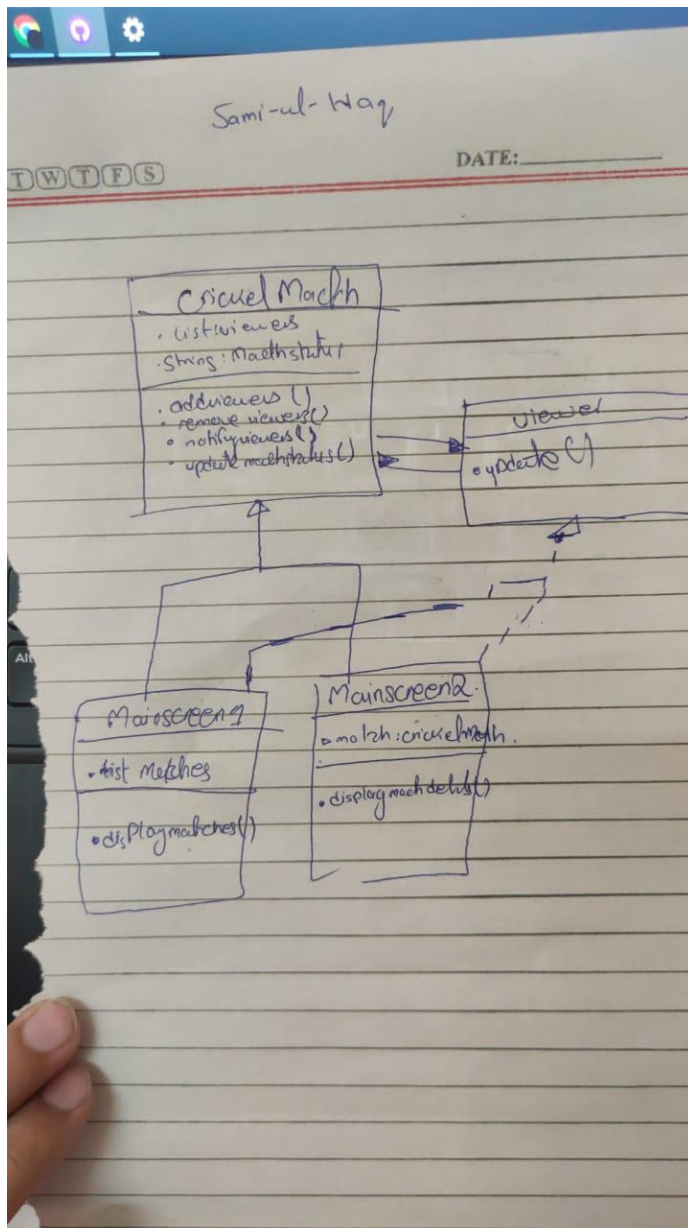 Sami-ul-Haq
T W T F S
DATE:
Cricket Macth
. List:viewers
. String: Macthstatus
. addviewers ()
. remove viewers()
. notifyviewers()
. update macthstatus()
viewer
. update ()
Alt
Mainscreen1
. List Matches
. displaymatches()
Mainscreen2.
. match:cricketmacth.
. displaymachdetils()